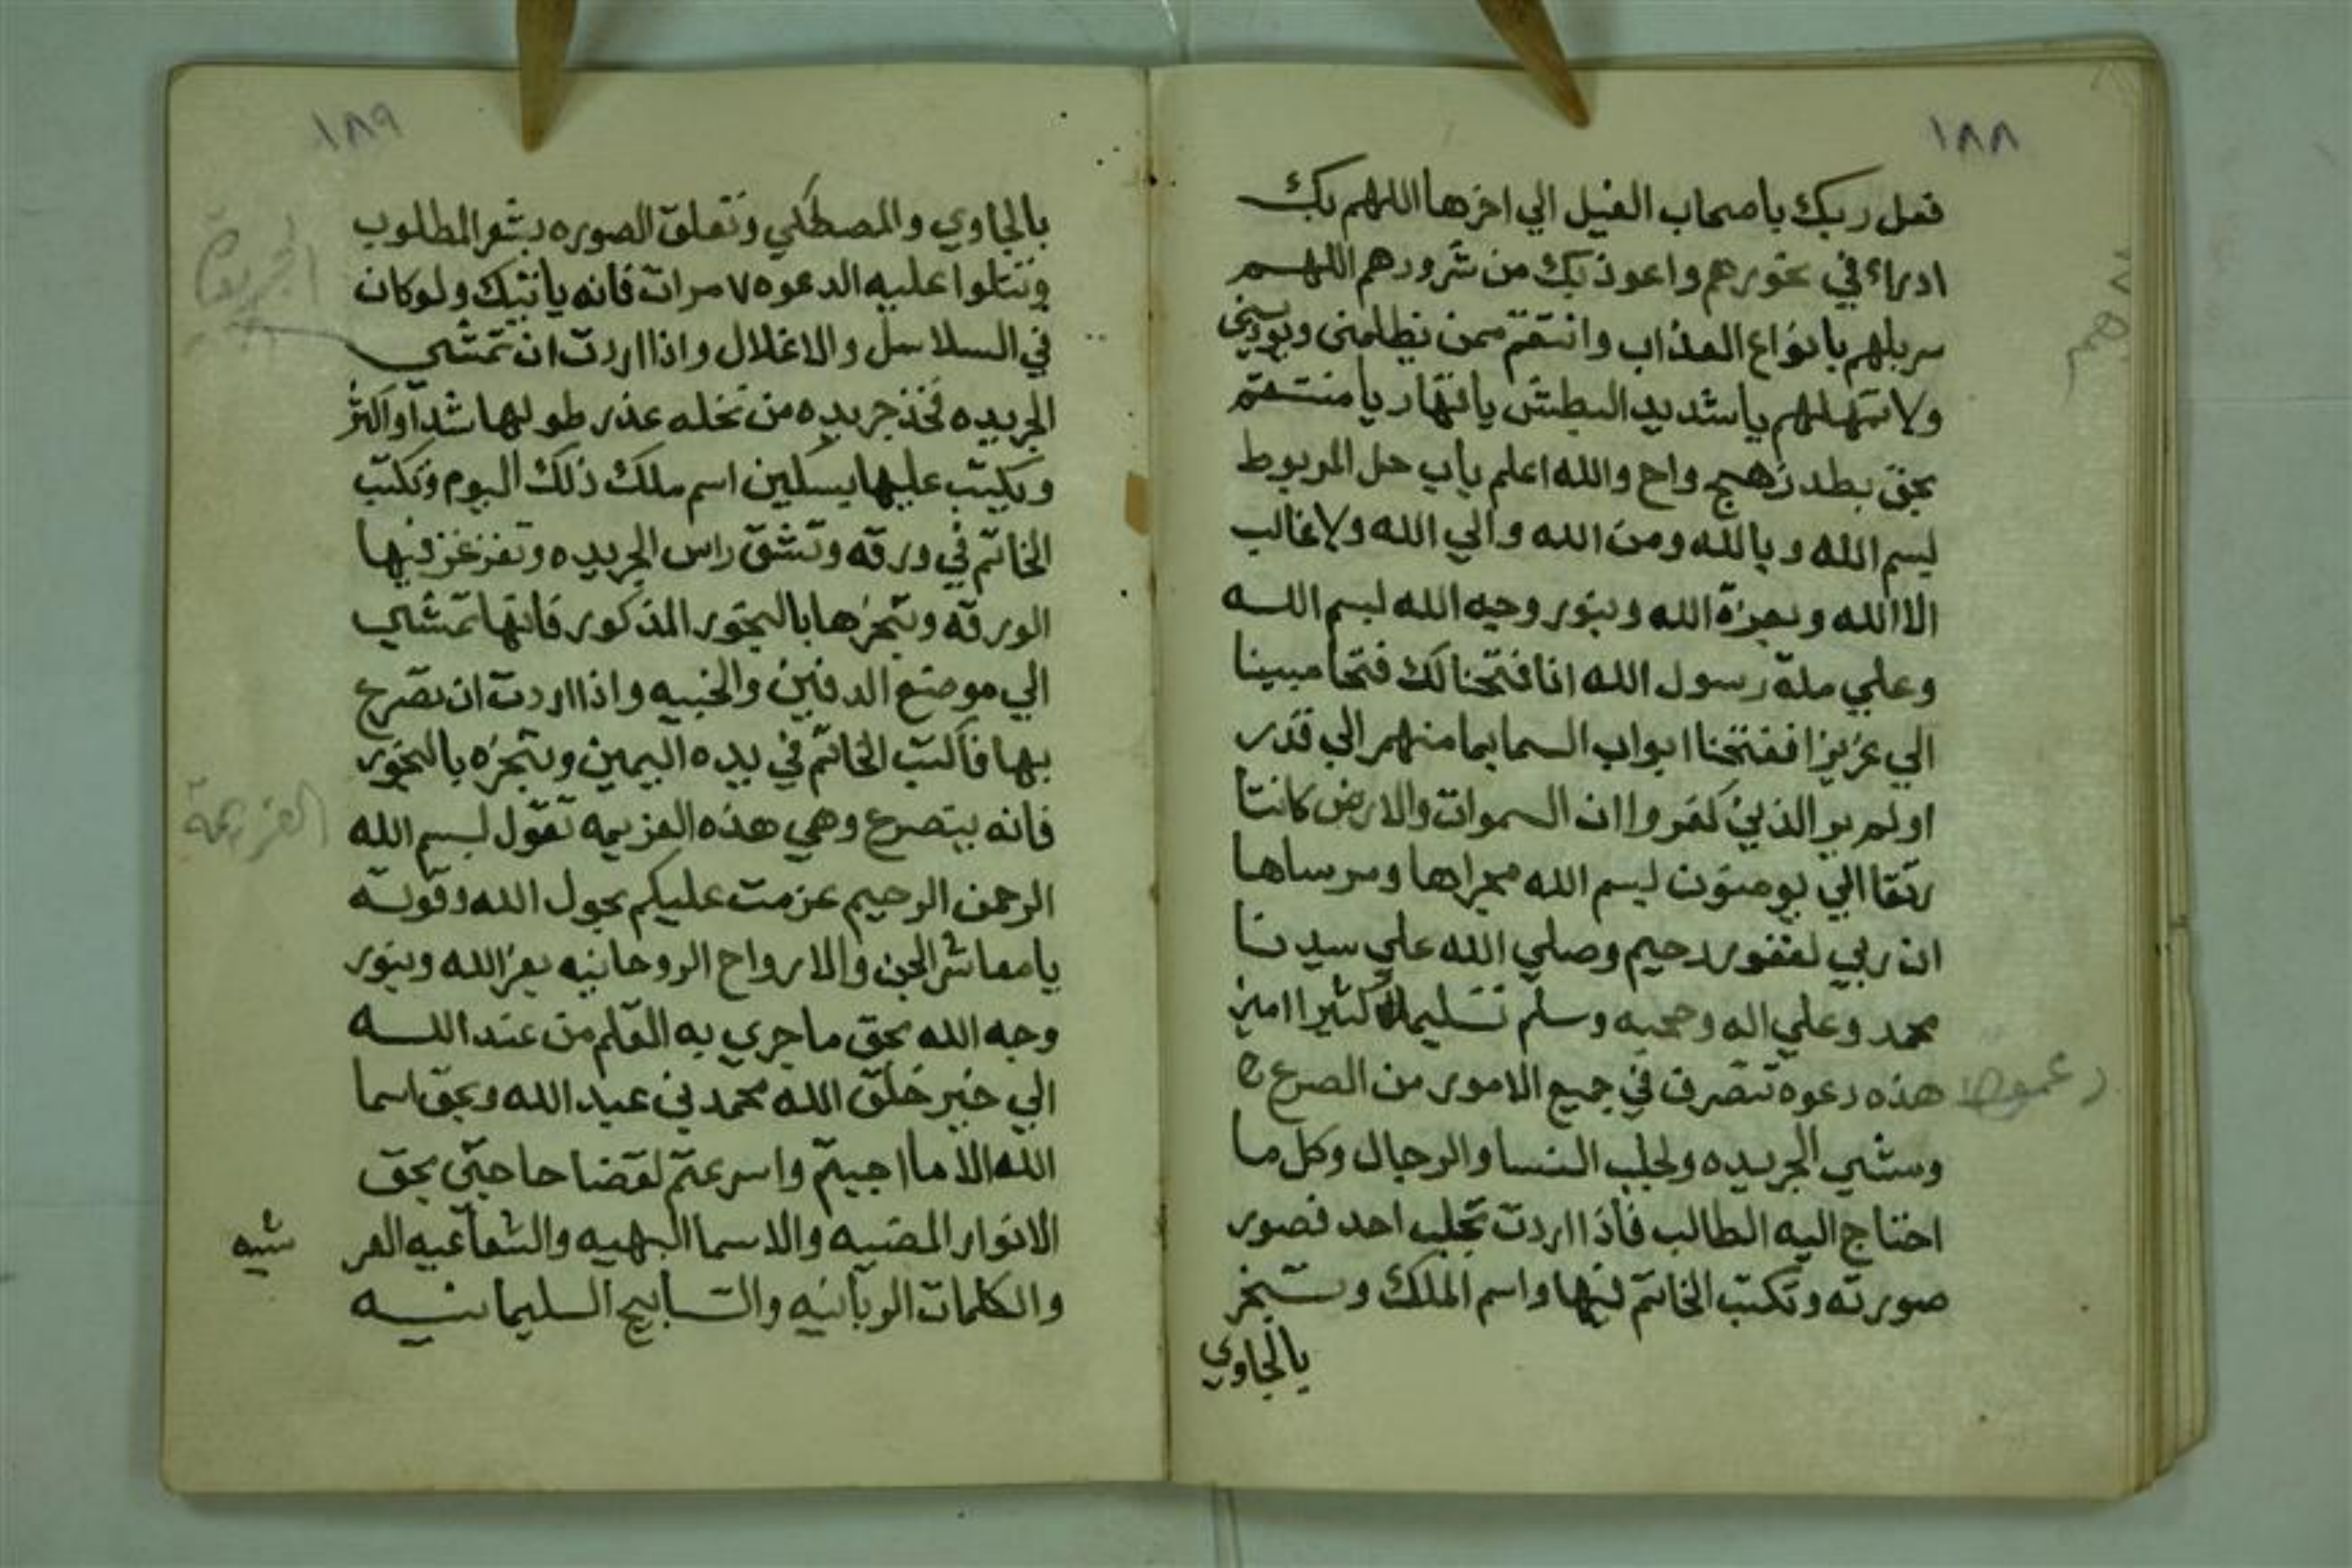 ١٨٨
فعل ربك باصحاب الفيل الي اخرها اللهم بك
ادراء في نحورهم واعوذ بك من شرورهم اللهم
سربلهم بانواع العذاب وانتقم ممن يظلمنى ويوذيني
ولا تمهلهم ياشديد البطش ياقهار يا منتقم
بحق بطد زهج واح والله اعلم باب حل المربوط
بسم الله وبالله ومن الله والي الله ولا غالب
الا الله وبعزة الله وبنور وجه الله بسم الله
وعلي ملة رسول الله انا فتحنا لك فتحا مبينا
الي عزيزا ففتحنا ابواب السما بما منهمر الي قدر
اولم ير الذين كفروا ان السموات والارض كانتا
رتقا الي يومنون بسم الله مجراها ومرساها
ان ربي لغفور رحيم وصلي الله علي سيدنا
محمد وعلي اله وصحبه وسلم تسليما كثيرا امين
هذه دعوه تتصرف في جميع الامور من الصرع
ومشي الجريده ولجلب النسا والرجال وكل ما
احتاج اليه الطالب فاذا اردت تجلب احد فصور
صورته وتكتب الخاتم فيها واسم الملك وتبخر
بالجاوي
١٨٩
بالجاوي والمصطكي وتعلق الصوره بشعر المطلوب
وتتلوا عليه الدعوه ٧ مرات فانه ياتيك ولو كان
في السلاسل والاغلال واذا اردت ان تمشي
الجريدة
الجريده فخذ جريده من نخله عذر طولها شدا او اكثر
وبكتب عليها بسكين اسم ملك ذلك اليوم وتكتب
الخاتم في ورقه وتشق راس الجريده وتغزغز فيها
الورقه وتبخرها بالبخور المذكور فانها تمشي
الي موضع الدفين والخبيه واذا اردت ان تصرع
بها فاكتب الخاتم في يده اليمين وتبخره بالبخور
فانه يتصرع وهي هذه العزيمه تقول بسم الله
العزيمة
الرحمن الرحيم عزمت عليكم بحول الله وقوته
يا معاشر الجن والارواح الروحانيه بعز الله وبنور
وجه الله بحق ما جري به القلم من عند الله
الي خير خلق الله محمد بن عبد الله وبحق اسما
الله الا ما اجبتم واسرعتم لقضا حاجتى بحق
الانوار المضيه والاسما البهيه والشعاعيه العر
شيه
والكلمات الربانيه والتسابيح السليمانيه